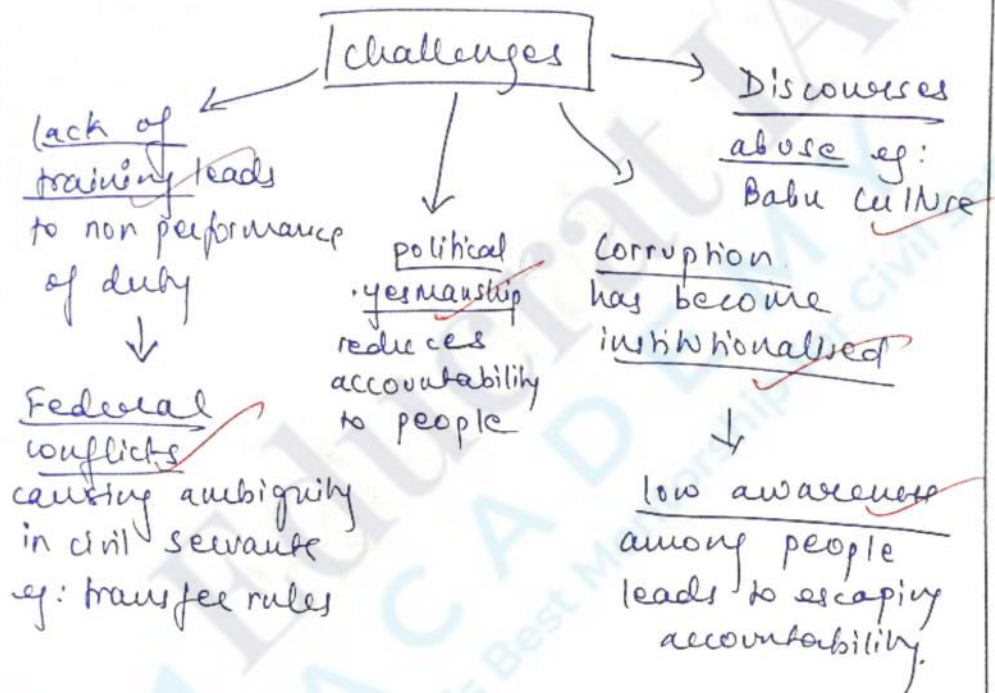 Challenges
lack of
training leads
to non performance
of duty
Federal
conflicts
causing ambiguity
in civil servants
eg: transfer rules
political
yesmanship
reduces
accountability
to people
Corruption
has become
institutionalised
low awareness
among people
leads to escaping
accountability.
Discourses
abuse eg:
Babu culture
Educrat IA
ACADEMY
's Best Mentorship for Civil Se